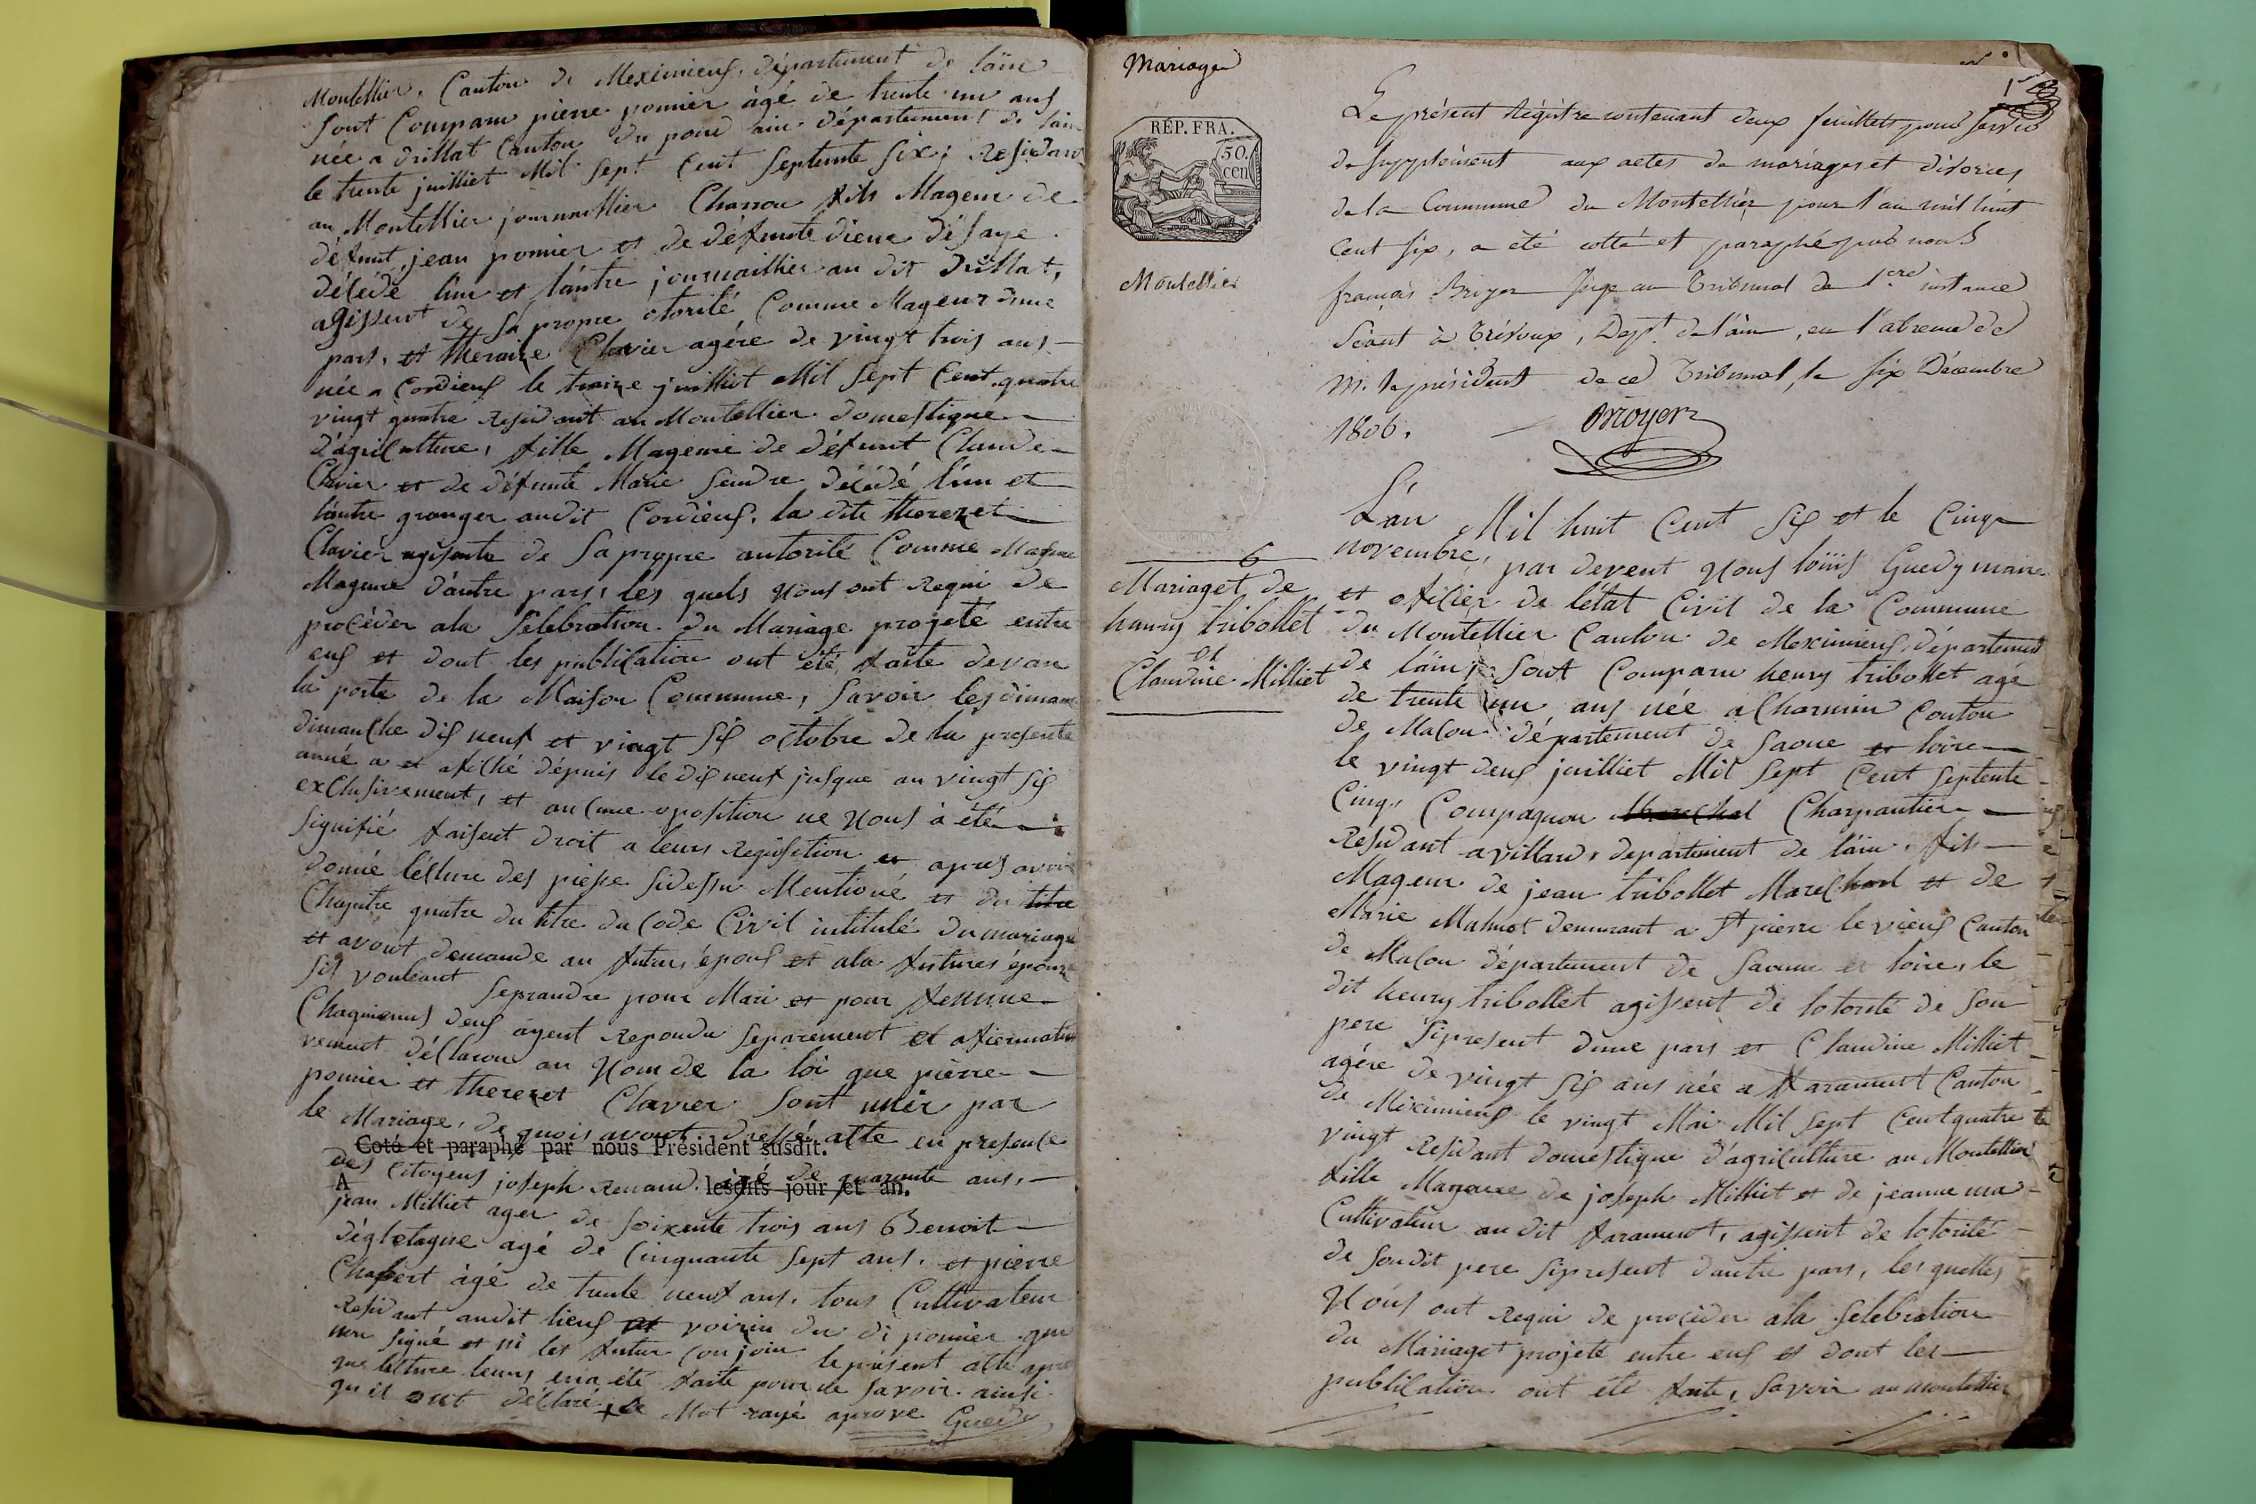 Montellier, Canton de Meximieuf, département de láin
sont Comparu pierre ponnier àgé de trente un ans
née a drillat Canton du pond ain département de láin
le trente juilliet Mil sept Cent septente six; Residant
au Montellier journaillier Charron fils Mageur de
défunt, jean ponnier et de défunte diene désaye
décédé lun et lántre journaillier au dit drillat,
agissent de sa propre otorité Comme Mageur dune
pars, et theraize Clavier agére de vingt trois ans
née a Cordieuf le traize juilliet Mil sept Cent quatre
vingt quatre Residant au Montellier domestique
d'agriculture, fille Mageure de défunt Claude
Clavier et de défunte Marie decédé lún et
lántre granger audit Cordieuf. la dite therezet
Clavier agisente de sa propre autorité Comme
Mageure d'autre pars, les quels Nous ont Requi de
procéder ala Selebration du Mariage projeté entre
eux et dont les publication ont été faite devan
la porte de la Maison Commune, savoir les diman
dimanche dis neuf et vingt six octobre de la presente
anné a et afiché dépuis le dis neuf jusque au vingt six
exclusivement, et aucune oposition ne Nous à été
signifié faisent droit a leurs Requisition et apres avoir
donné lésture des piesse sidessu Mentioné et du titre
Chapitre quatre du titre du Code Civil intitulé du mariage
et avont demande au futur épous et ala futures épouze
sil vouleant seprandre pour Mari et pour femme
Chaquienus deus àyent Repondu separement et afiermati
vement déclaron au Nom de la loi que pierre
ponnier et therezet Clavier sont unir par
le Mariage, de quois avont dressé atte en presente
Coté et paraphé par nous Président susdit.
des Citoyens joseph Renaud agé de quarante ans,
A lesdits jour et an.
jean Milliet ager de soixente trois ans Benoit
dégletagne agé de Cinquante sept ans, et pierre
Chabert àgé de trente neuf ans, tous Cultivateur
Residant audit lieus et voizin du di ponnier que
non signé et ni les futur Conjoin le présent atte apre
que lecture leurs ena été faite pour ne savoir ainsi
qu'il ont déclaré, le Mot rayé aprove Guedy
Mariage
RÉP. FRA.
50.
cen
Montellier
1er
Le présent Régistre contenant deux feuillets pour servir
de supplément aux actes de mariages et divorces
de la Commune du Montellier pour l'an mil huit
cent six, a été cotté et paraphé par nous
françois Brizon Juge au Tribunal de 1ere instance
Séant à Trévoux, Dept. de l'ain, en l'absence de
M. le président de ce Tribunal, le six Décembre
1806.
L'án Mil huit Cent six et le Cinq
novembre, par devent Nous loüis Guedy maire
et oficier de létat Civil de la Commune
du Montellier Canton de Meximieuf, départemend
de láin, sont Comparu henry tribollet agé
de trente un ans née a Charnin Conton
de Macon département de saone et loire
le vingt deus juilliet Mil sept Cent septente
Cinq, Compagnon Marechal Charpantier
Residant avillard, departement de láin, fils
Mageur de jean tribollet Marechal et de
Marie Mahuot demurant a St pierre le vieuf Canton
de Macon département de saoune et loire, le
dit henry tribollet agissent de lotorité de son
pere sipresent dune pars et Claudine Milliet
agére de vingt six ans née a faramant Canton
de Miximieuf le vingt Mai Mil sept Cent quatre
vingt Residant domestique d'agriculture au Montellier
fille Mageure de joseph Milliet et de jeanne ma
Cultivateur audit faramant, agissent de lotorité
de soudit pere sipresent dautre pars, les quelles
Nous ont Requi de procéder ala Selebration
du Mariaget projeté entre eus et dont les
publication ont été faite, savoir au montellier
6
Mariaget de
hanry tribollet
et
Claudine Milliet